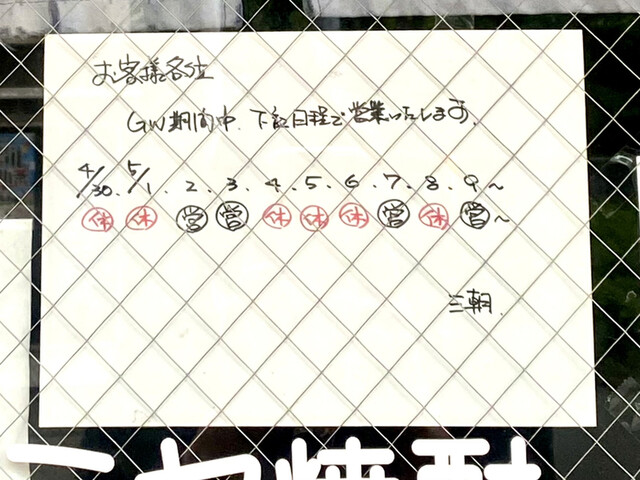 お客様各位
GW期間中、下記日程で営業いたします。
4/30、5/1、2、3、4、5、6、7、8、9〜
休 休 営 営 休 休 休 営 休 営〜
三朝